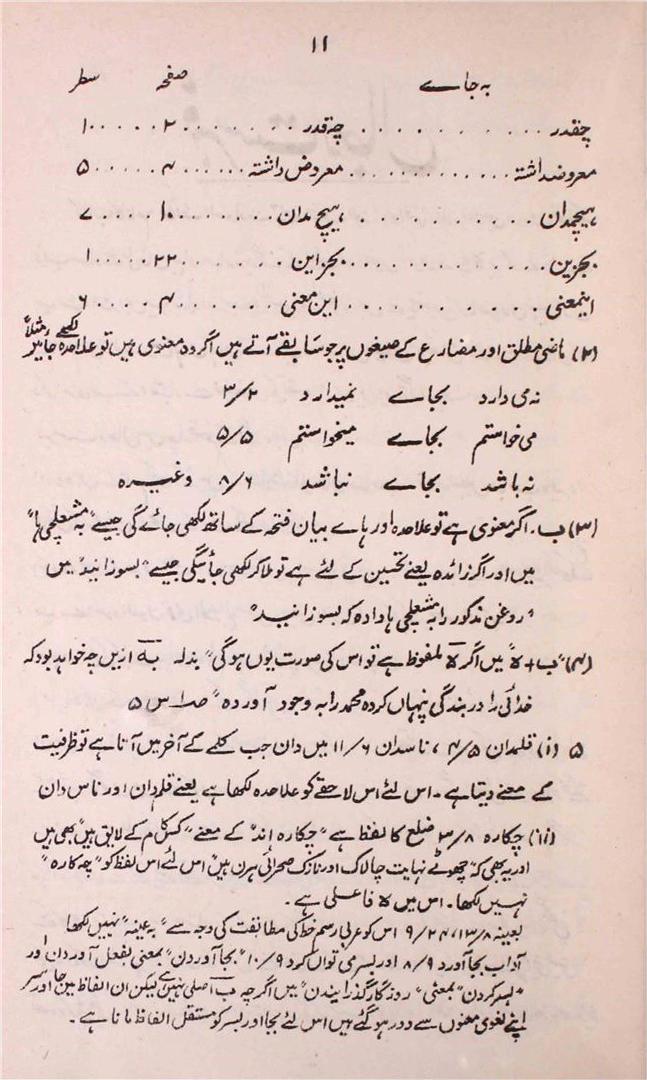 ۱۱
بہ جاے صفحہ سطر
چقدر . . . . . . . . . . . چہ قدر . . . . . . . ۲ . . . . . ۱۰
معروضداشتہ . . . . . . . . . . . معروض داشتہ . . . . . . ۴ . . . . . ۵
ہیچمدان . . . . . . . . . . . ہیچ مدان . . . . . . ۱۰ . . . . ۷
بجزین . . . . . . . . . . . بجز این . . . . . . ۲۲ . . . . . ۱
اینمعنی . . . . . . . . . . . این معنی . . . . . . ۴ . . . . ۶
(۲) ماضی مطلق اور مضارع کے صیغوں پر جو سابقے آتے ہیں اگر وہ معنوی ہیں تو علاحدہ لکھے جائیں مثلاً
نہ می دارد بجاے نمیدارد ۳/۲
می خواستم بجاے میخواستم ۵/۵
نہ باشد بجاے نباشد ۸/۶ وغیرہ
(۳) ب۔ اگر معنوی ہے تو علاحدہ اور ہاے بیان فتحہ کے ساتھ لکھی جائے گی جیسے "بہ مشعلچی ہا"
میں اور اگر زائدہ یعنے تحسین کے لئے ہے تو ملا کر لکھی جائیگی جیسے "بسوزانید" میں
"روغن مذکور را بہ مشعلچی ہا دادہ کہ بسوزانید"
(۴) "ب + لا" میں اگر لا ملفوظ ہے تو اس کی صورت یوں ہوگی "بدلہ بہ ازیں چہ خواہد بود کہ
خدائی را در بندگی پنہاں کردہ محمد را بہ وجود آوردہ" ص ۱ س ۵
۵ (i) قلمدان ۴/۵، ناسدان ۱۱/۶ میں دان جب کلمے کے آخر میں آتا ہے تو ظرفیت
کے معنے دیتا ہے۔ اس لئے اس لاحقے کو علاحدہ لکھا ہے یعنے قلم دان اور ناس دان
(ii) چکارہ ۳/۸ ضلع کا لفظ ہے "چکارہ اند" کے معنے "کس کام کے لایق ہیں" بھی ہیں
اور یہ بھی کہ "چھوٹے نہایت چالاک اور نازک صحرائی ہرن ہیں" اس لئے اس لفظ کو "چہ کارہ"
نہیں لکھا۔ اس میں لا فاعلی ہے۔
بعینہ ۱۳/۸، ۹/۲۴ اس کو عربی رسم خط کی مطابقت کی وجہ سے "بہ عینہ" نہیں لکھا
آداب بجا آورد ۸/۹ اور بسری تواں کرد ۱۰/۹ "بجا آوردن" بمعنی بفعل آوردان اور
"بسر کردن" بمعنی "روزگار گذرانیدن" میں اگرچہ ب اصلی نہیں ہے لیکن ان الفاظ میں جا اور سر
اپنے لغوی معنوں سے دور ہو گئے ہیں اس لئے بجا اور بسر کو مستقل الفاظ مانا ہے۔